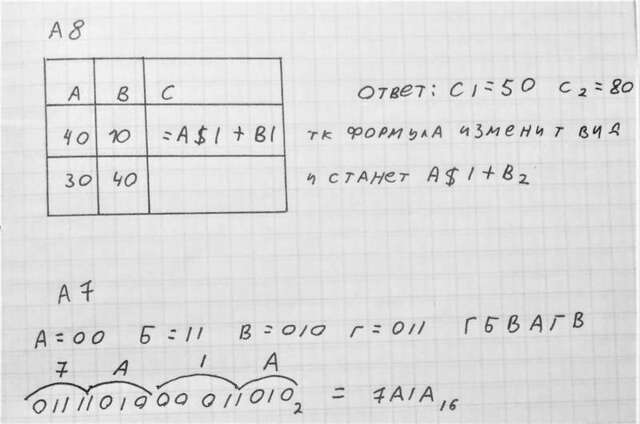 А8
А В С
40 10 =А$1 + В1
30 40
ответ: С1=50 С2=80
тк формула изменит вид
и станет А$1+В2
А7
А=00 Б=11 В=010 Г=011 ГБВАГВ
7 А 1 А
0111101000011010₂ = 7А1А₁₆